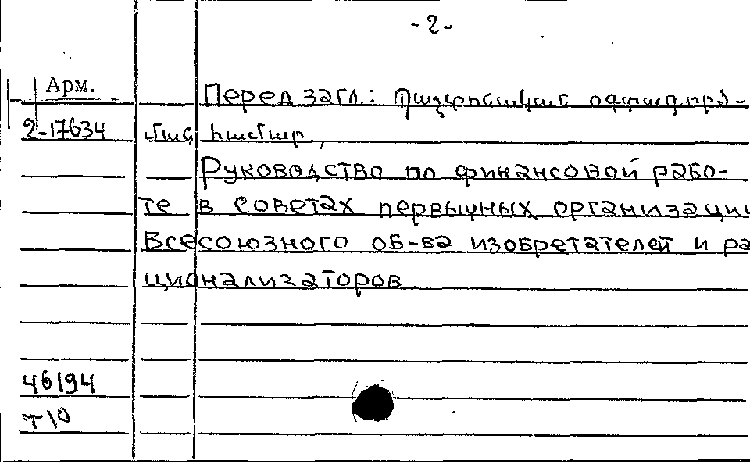 -2-
Арм.
Перед загл.:
2-17634
Руководство по финансовой рабо-
те в советах первычных организаци
Всесоюзного об-ва изобретателей и ра
ционализаторов
46194
т10